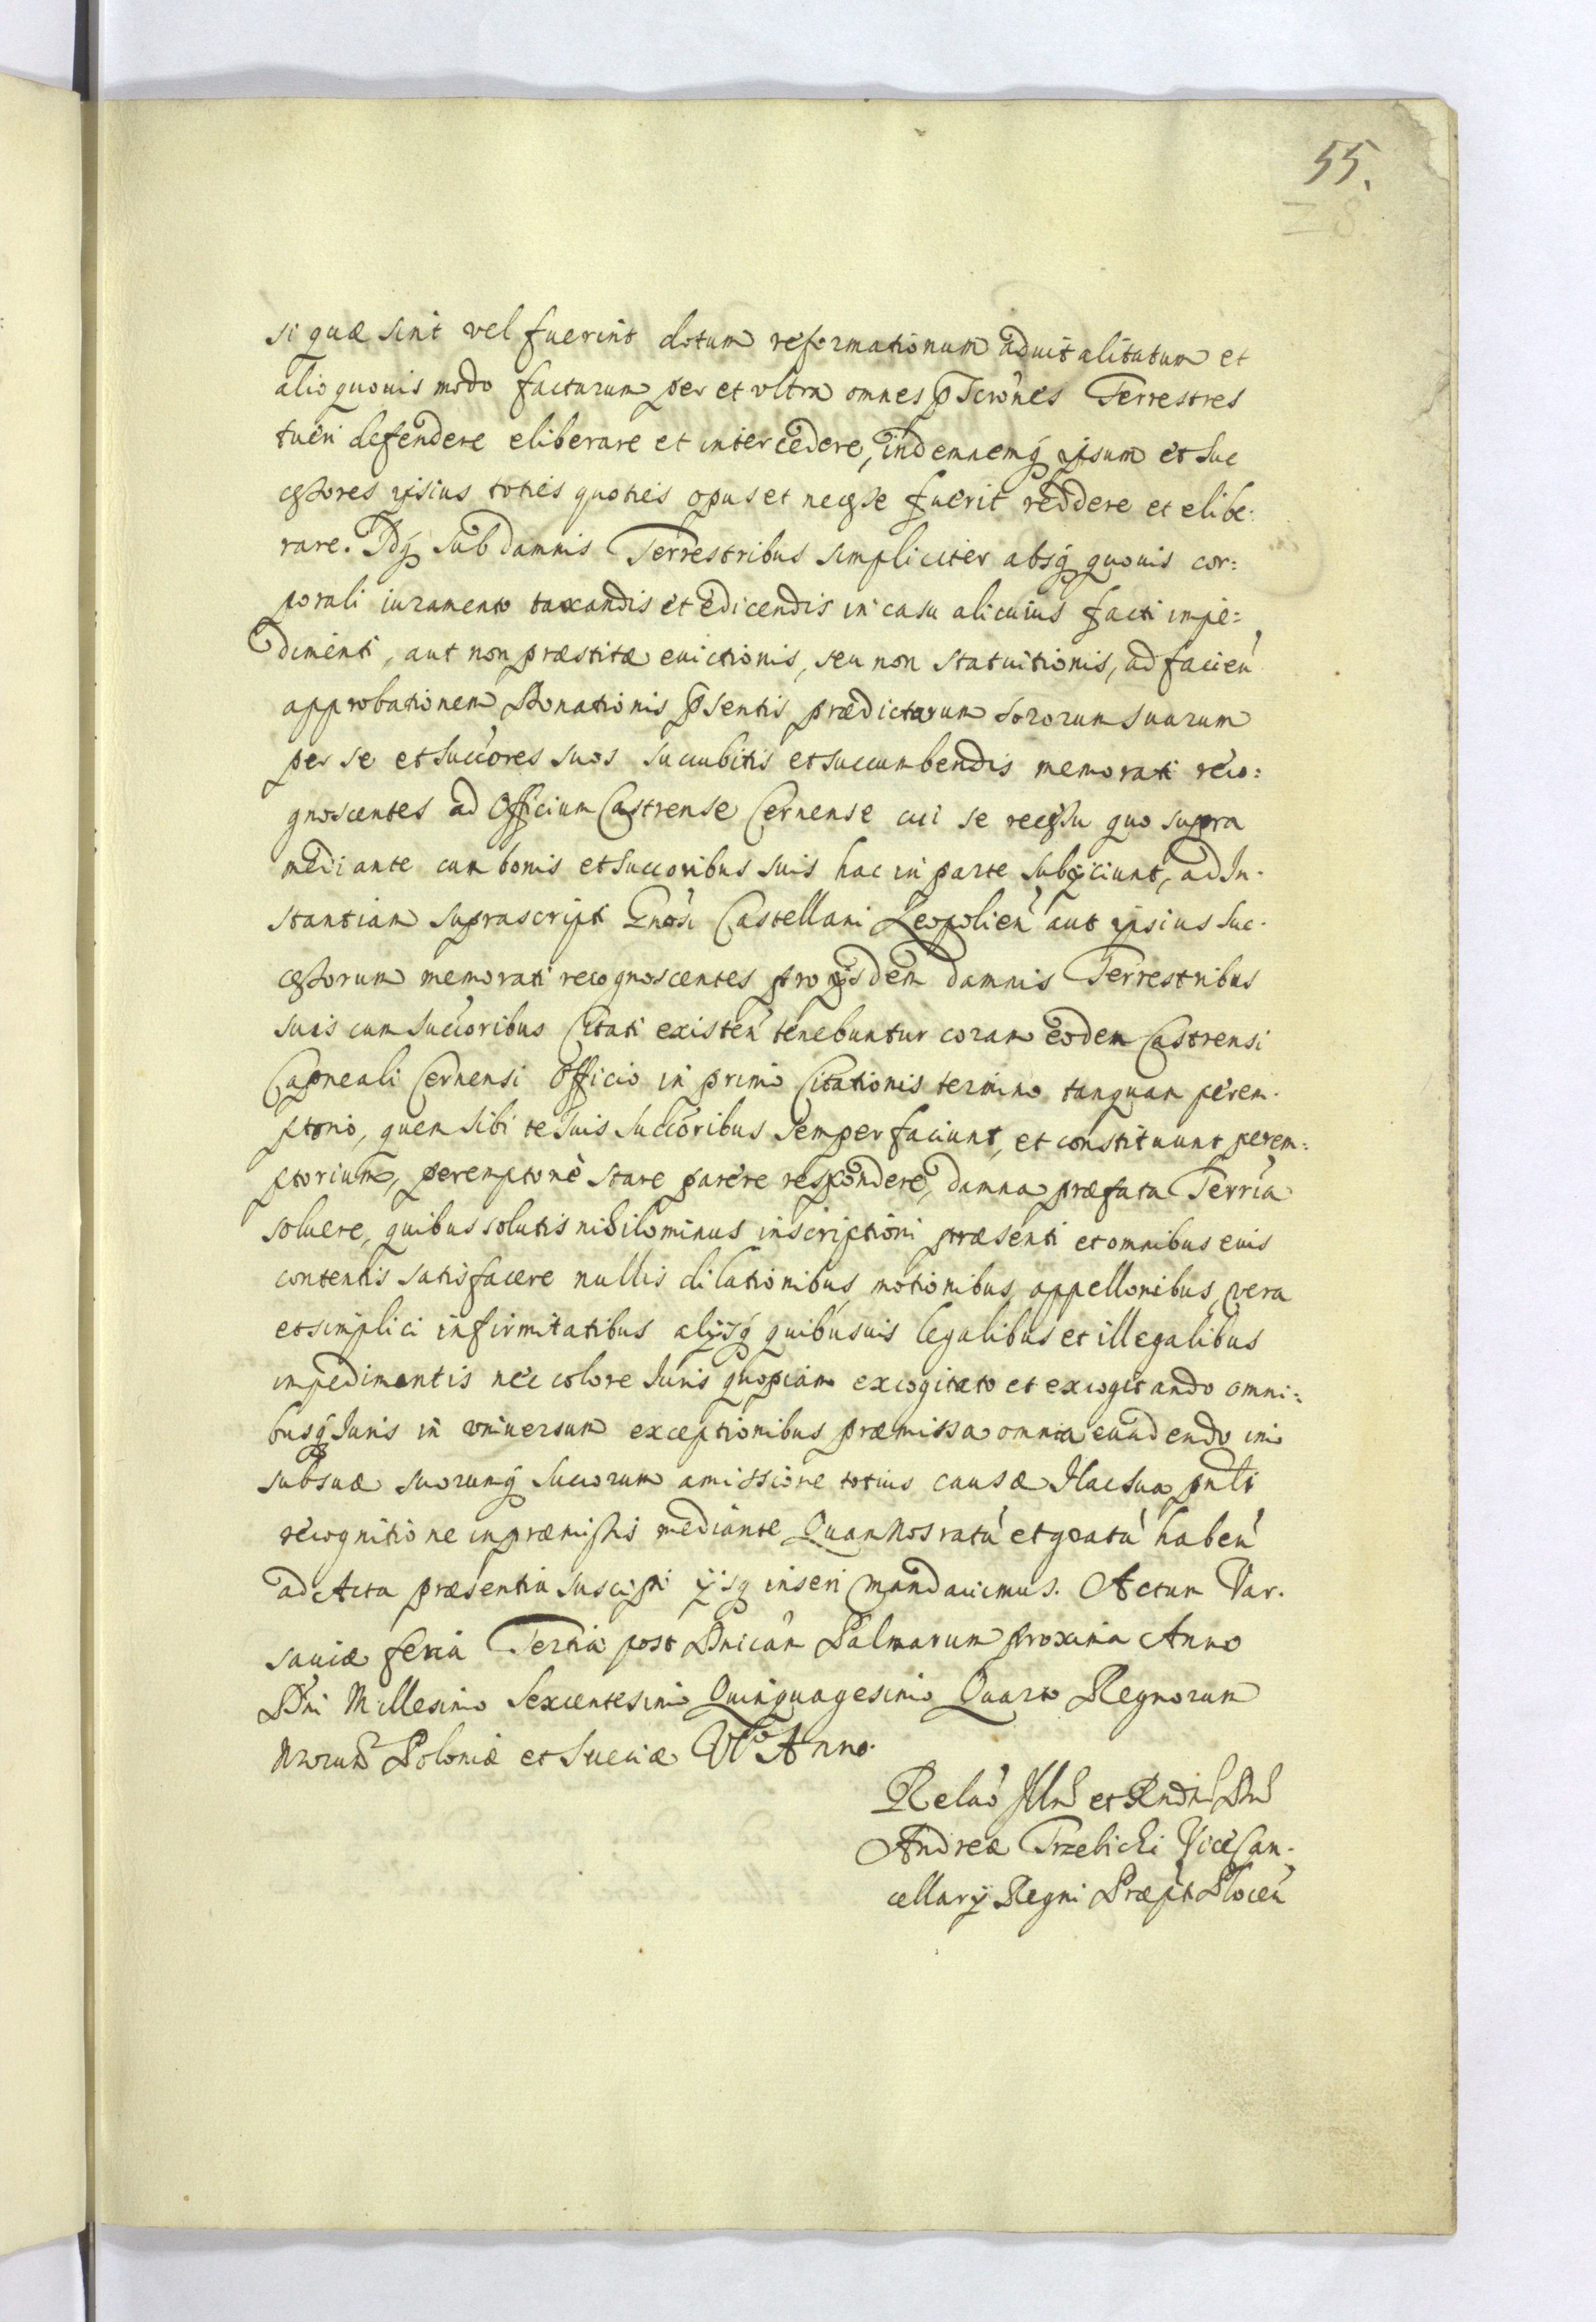 55.
28.
si quæ sint vel fuerint dotum reformationum aduitalitatum et
alio quouis modo factarum per et vltra omnes p̄scrōnes Terrestres
tueri defendere eliberare et intercedere, indemnemq́ ipsum et suc
cessores ipsius toties quoties opus et necesse fuerit reddere et elibe-
rare. Idq́ sub damnis Terrestribus simpliciter absq́ quouis cor:
porali iuramento taxandis et edicendis in casu alicuius facti impe:
dimenti, aut non præstitæ euictionis, seu non statuitionis, ad facień
approbationem Donationis p̄sentis prædictarum sororum suarum
per se et succ̄ores suos succubitis et succumbendis memorati reco:
gnoscentes ad Officium Castrense Cernense cui se recessu quo supra
mediante cum bonis et succoribus suis hac in parte subijciunt, ad In-
stantiam suprascripti Gnōsi Castellani Leopolień aut ipsius suc-
cessorum memorati recognoscentes pro ijsdem damnis Terrestribus
suis cum succōribus Citati existeń tenebuntur coram eodem Castrensi
Capneali Cernensi Officio in primo Citationis termino tanquam perem-
ptorio, quem sibi te suis succōribus semper faciunt, et constituunt perem:
ptorium, peremptorie stare parere respondere, damna præfata Terrīa
soluere, quibus solutis nihilominus inscriptioni præsenti et omnibus euis
contentis satisfacere nullis dilationibus, motionibus, appellonibus, vera
et simplici infirmitatibus alijsq́ quibusuis legalibus et illegalibus
impedimentis nec colore Iuris quopiam excogitato et excogitando omni:
busq́ Iuris in vniuersum exceptionibus præmissa omnia euadendo imo
sub suæ suorumq́ succorum amissione totius causæ Hac sua pnti
recognitione in præmissis mediante Quam Nos ratū et gratū habeń
ad Acta præsentia suscipi ijsq inseri mandauimus. Actum Var.
sauiæ feria Tertia post Dnicām Palmarum proxima Anno
Dn̄i Millesimo Sexcentesimo Quinquagesimo Quarto Regnorum
Nrorum Poloniæ et Sueciæ VIo Anno.
Relaō Illris et Rndmi Dni
Andreæ Trzebicki Vice Can-
cellarij Regni Præpti Ploceń